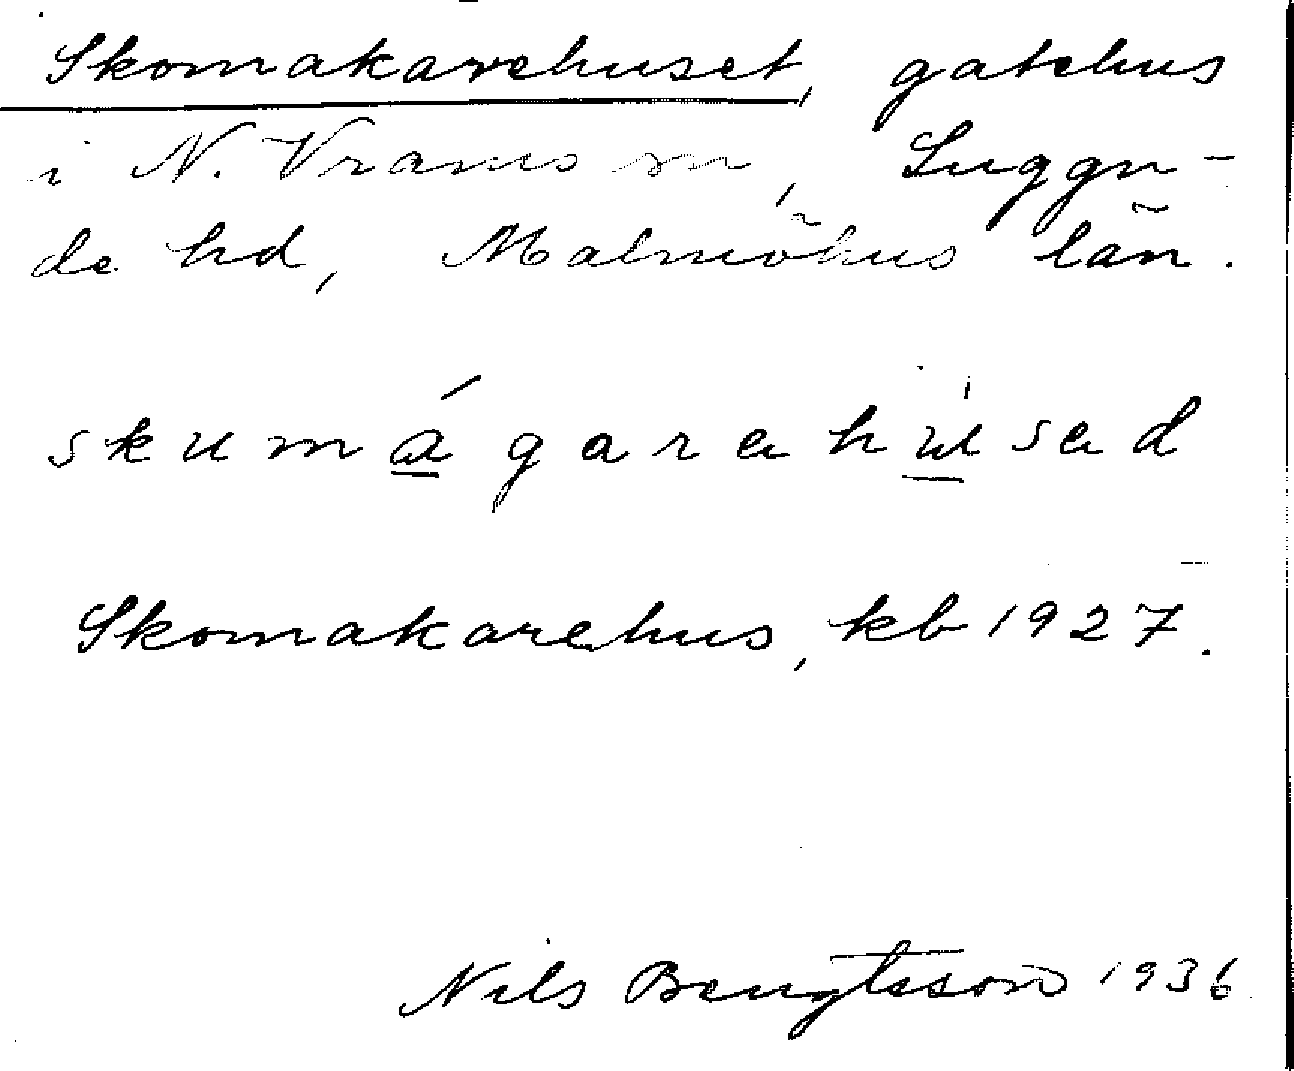 Skomakarehuset, gatehus
i N. Vrams sn, Luggu-
de hd, Malmöhus län.
skumágarehúsed
Skomakarehus, kb 1927.
Nils Bengtsson 1936